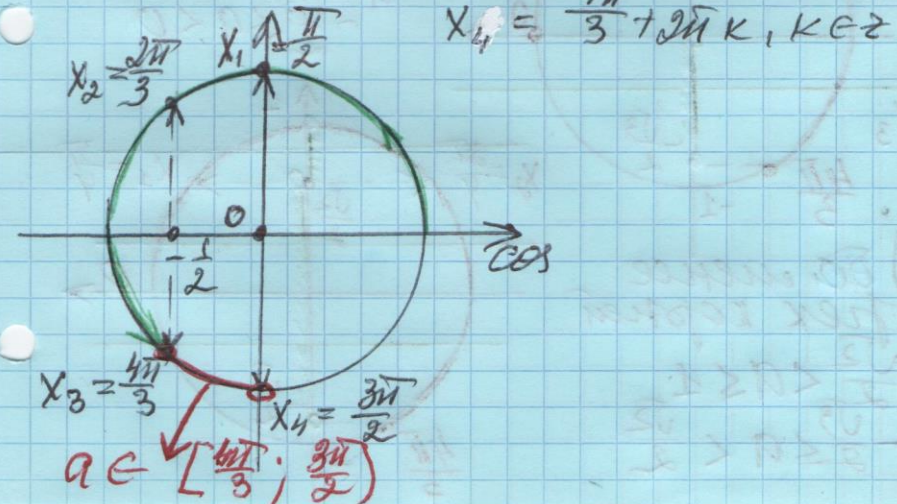 X₄ = π/3 + 2πk, k ∈ z
X₁ = π/2
X₂ = 2π/3
0
-1/2
cos
X₃ = 4π/3
X₄ = 3π/2
a ∈ [4π/3; 3π/2)